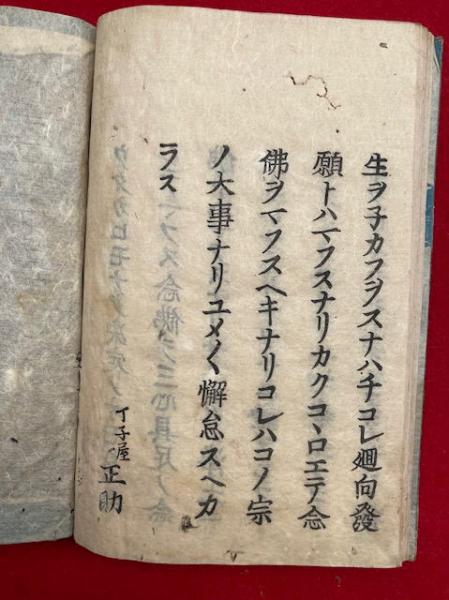 生ヲ子カフヲスナハチコレ廻向發
願トハマフスナリカクコヽロエテ念
佛ヲマフスヘキナリコレハコノ宗
ノ大事ナリユメ〱懈怠スヘカ
ラス
丁子屋
正助